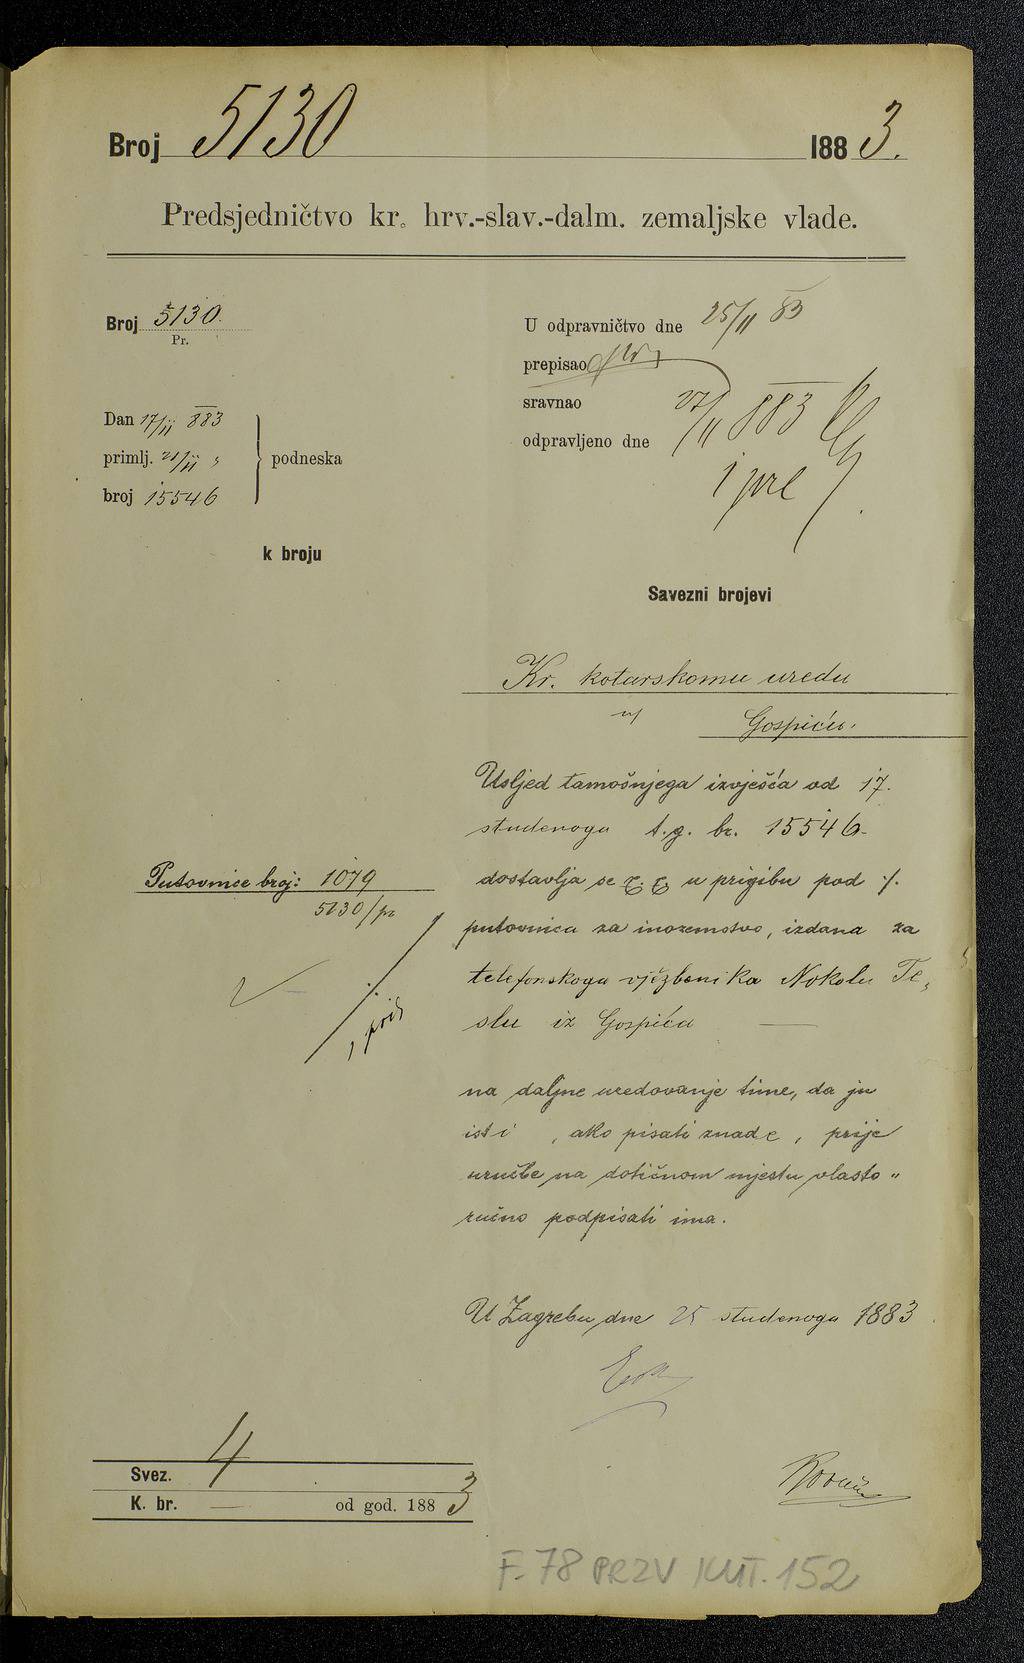 Broj 5130 1883.
Predsjedničtvo kr. hrv.-slav.-dalm. zemaljske vlade.
Broj 5130.
Pr.
Dan 17/11 883
primlj. 21/11 "
broj 15546
podneska
k broju
U odpravničtvo dne 25/11 83
prepisao
sravnao
odpravljeno dne 27/11 883
1 pril
Savezni brojevi
Kr. kotarskomu uredu
u
Gospiću.
Usljed tamošnjega izvješća od 17.
studenoga t.g. br. 15546
Putovnice broj: 1079
5130/pr
dostavlja se u prigibu pod ·/.
putovnica za inozemstvo, izdana za
telefonskoga vježbenika Nokolu Te„
slu iz Gospića
1 pril
na daljne uredovanje time, da ju
isti, ako pisati znade, prije
uručbe na dotičnom mjestu vlasto„
ručno podpisati ima.
U Zagrebu dne 25 studenoga 1883
Svez. 4
K. br. — od god. 1883
F. 78 PRZV KUT. 152